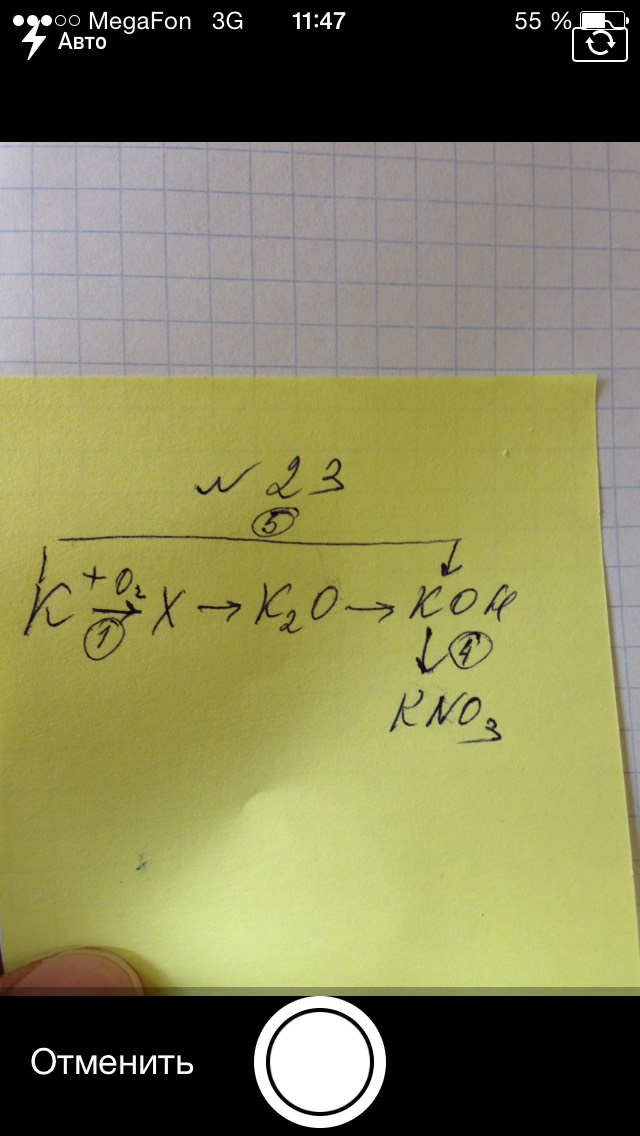 MegaFon 3G 11:47 55 %
Авто
N 23
5
K +O₂ → X → K₂O → KOH
1
↓ 4
KNO₃
Отменить